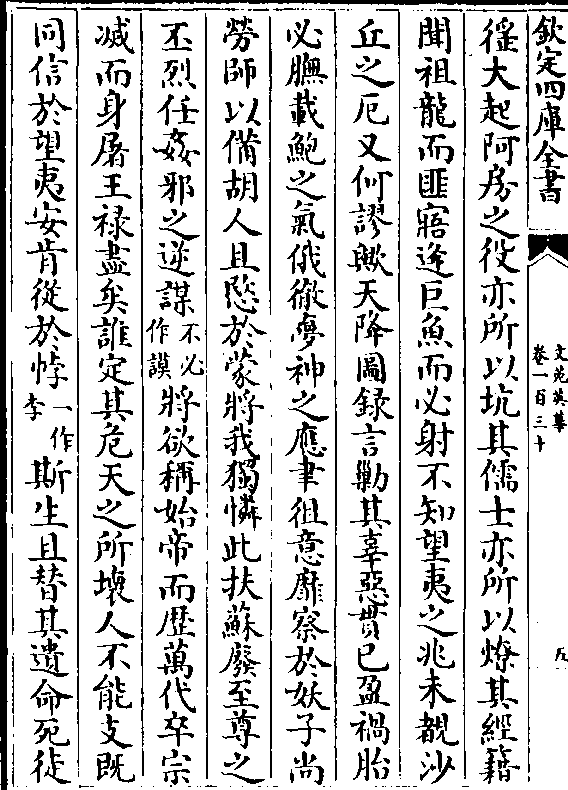 欽定四庫全書
文苑英華
卷一百三十
九
徭大起阿房之役亦所以坑其儒士亦所以燎其經籍
聞祖龍而匪寤逢巨魚而必射不知望夷之兆未覩沙
丘之厄又何謬歟天降圖錄言勦其辜惡貫已盈禍胎
必膴載鮑之氣俄徹夢神之應聿徂意靡察於妖子尚
勞師以備胡人且慇於蒙將我獨憐此扶蘇廢至尊之
丕烈任姦邪之逆謀不必作謨將欲稱始帝而歴萬代卒宗
滅而身屠王禄盡矣誰定其危天之所壊人不能支既
同信於望夷安肯從於悖一作李斯生且替其遺命死徒